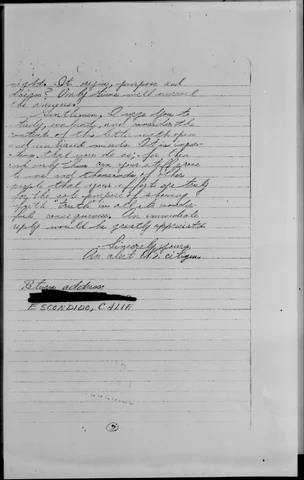 night. Its origin, purpose and
design? Only time will reveal
the answers.
Gentlemen, I urge you to
study, and analize the
contents of this letter with open
and unbiased minds. It is impor-
tant that you do so; for then
and only then can you
to me and thousands of other
people that your efforts are truly
for the sole purpose of
forth "truth" in all its
consequences. An immediate
reply would be greatly appreciated.
Sincerely yours,
An alert U.S. citizen.
Return address
ESCONDIDO, CALIF.